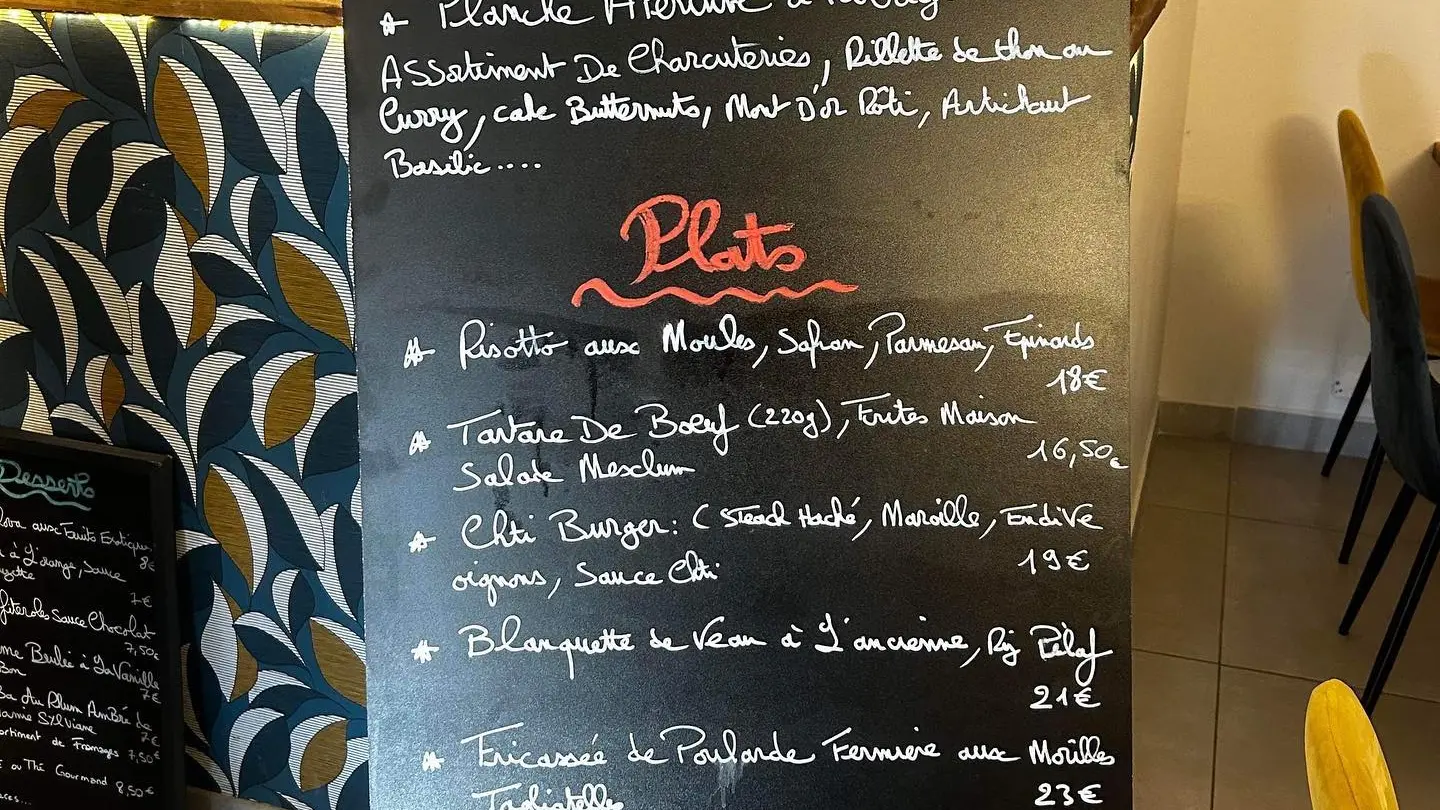 Planche Apéritive à
Assortiment De Charcuteries, Rillette de thon au
Curry, cake Butternuts, Mont D'or Rôti, Artichaut
Basilic....
Plats
Risotto aux Moules, Safran, Parmesan, Epinards
18€
Tartare De Bœuf (220g), Frites Maison
16,50€
Salade Mesclum
Chti Burger: (Steack Haché, Maroille, EndiVe
19€
oignons, Sauce Chti
Blanquette de Veau à L'ancienne, Riz Pilaf
21€
Fricassée de Poularde Fermière aux Morilles
23€
Tagliatelles
Desserts
aux Fruits Exotiques
8€
à L'orange, Sauce
7€
Sauce Chocolat
7,50€
Brulée à La Vanille
7€
Au Rhum AmBré de
SYLViane
7€
de Fromages 7,50€
ou Thé Gourmand 8,50€